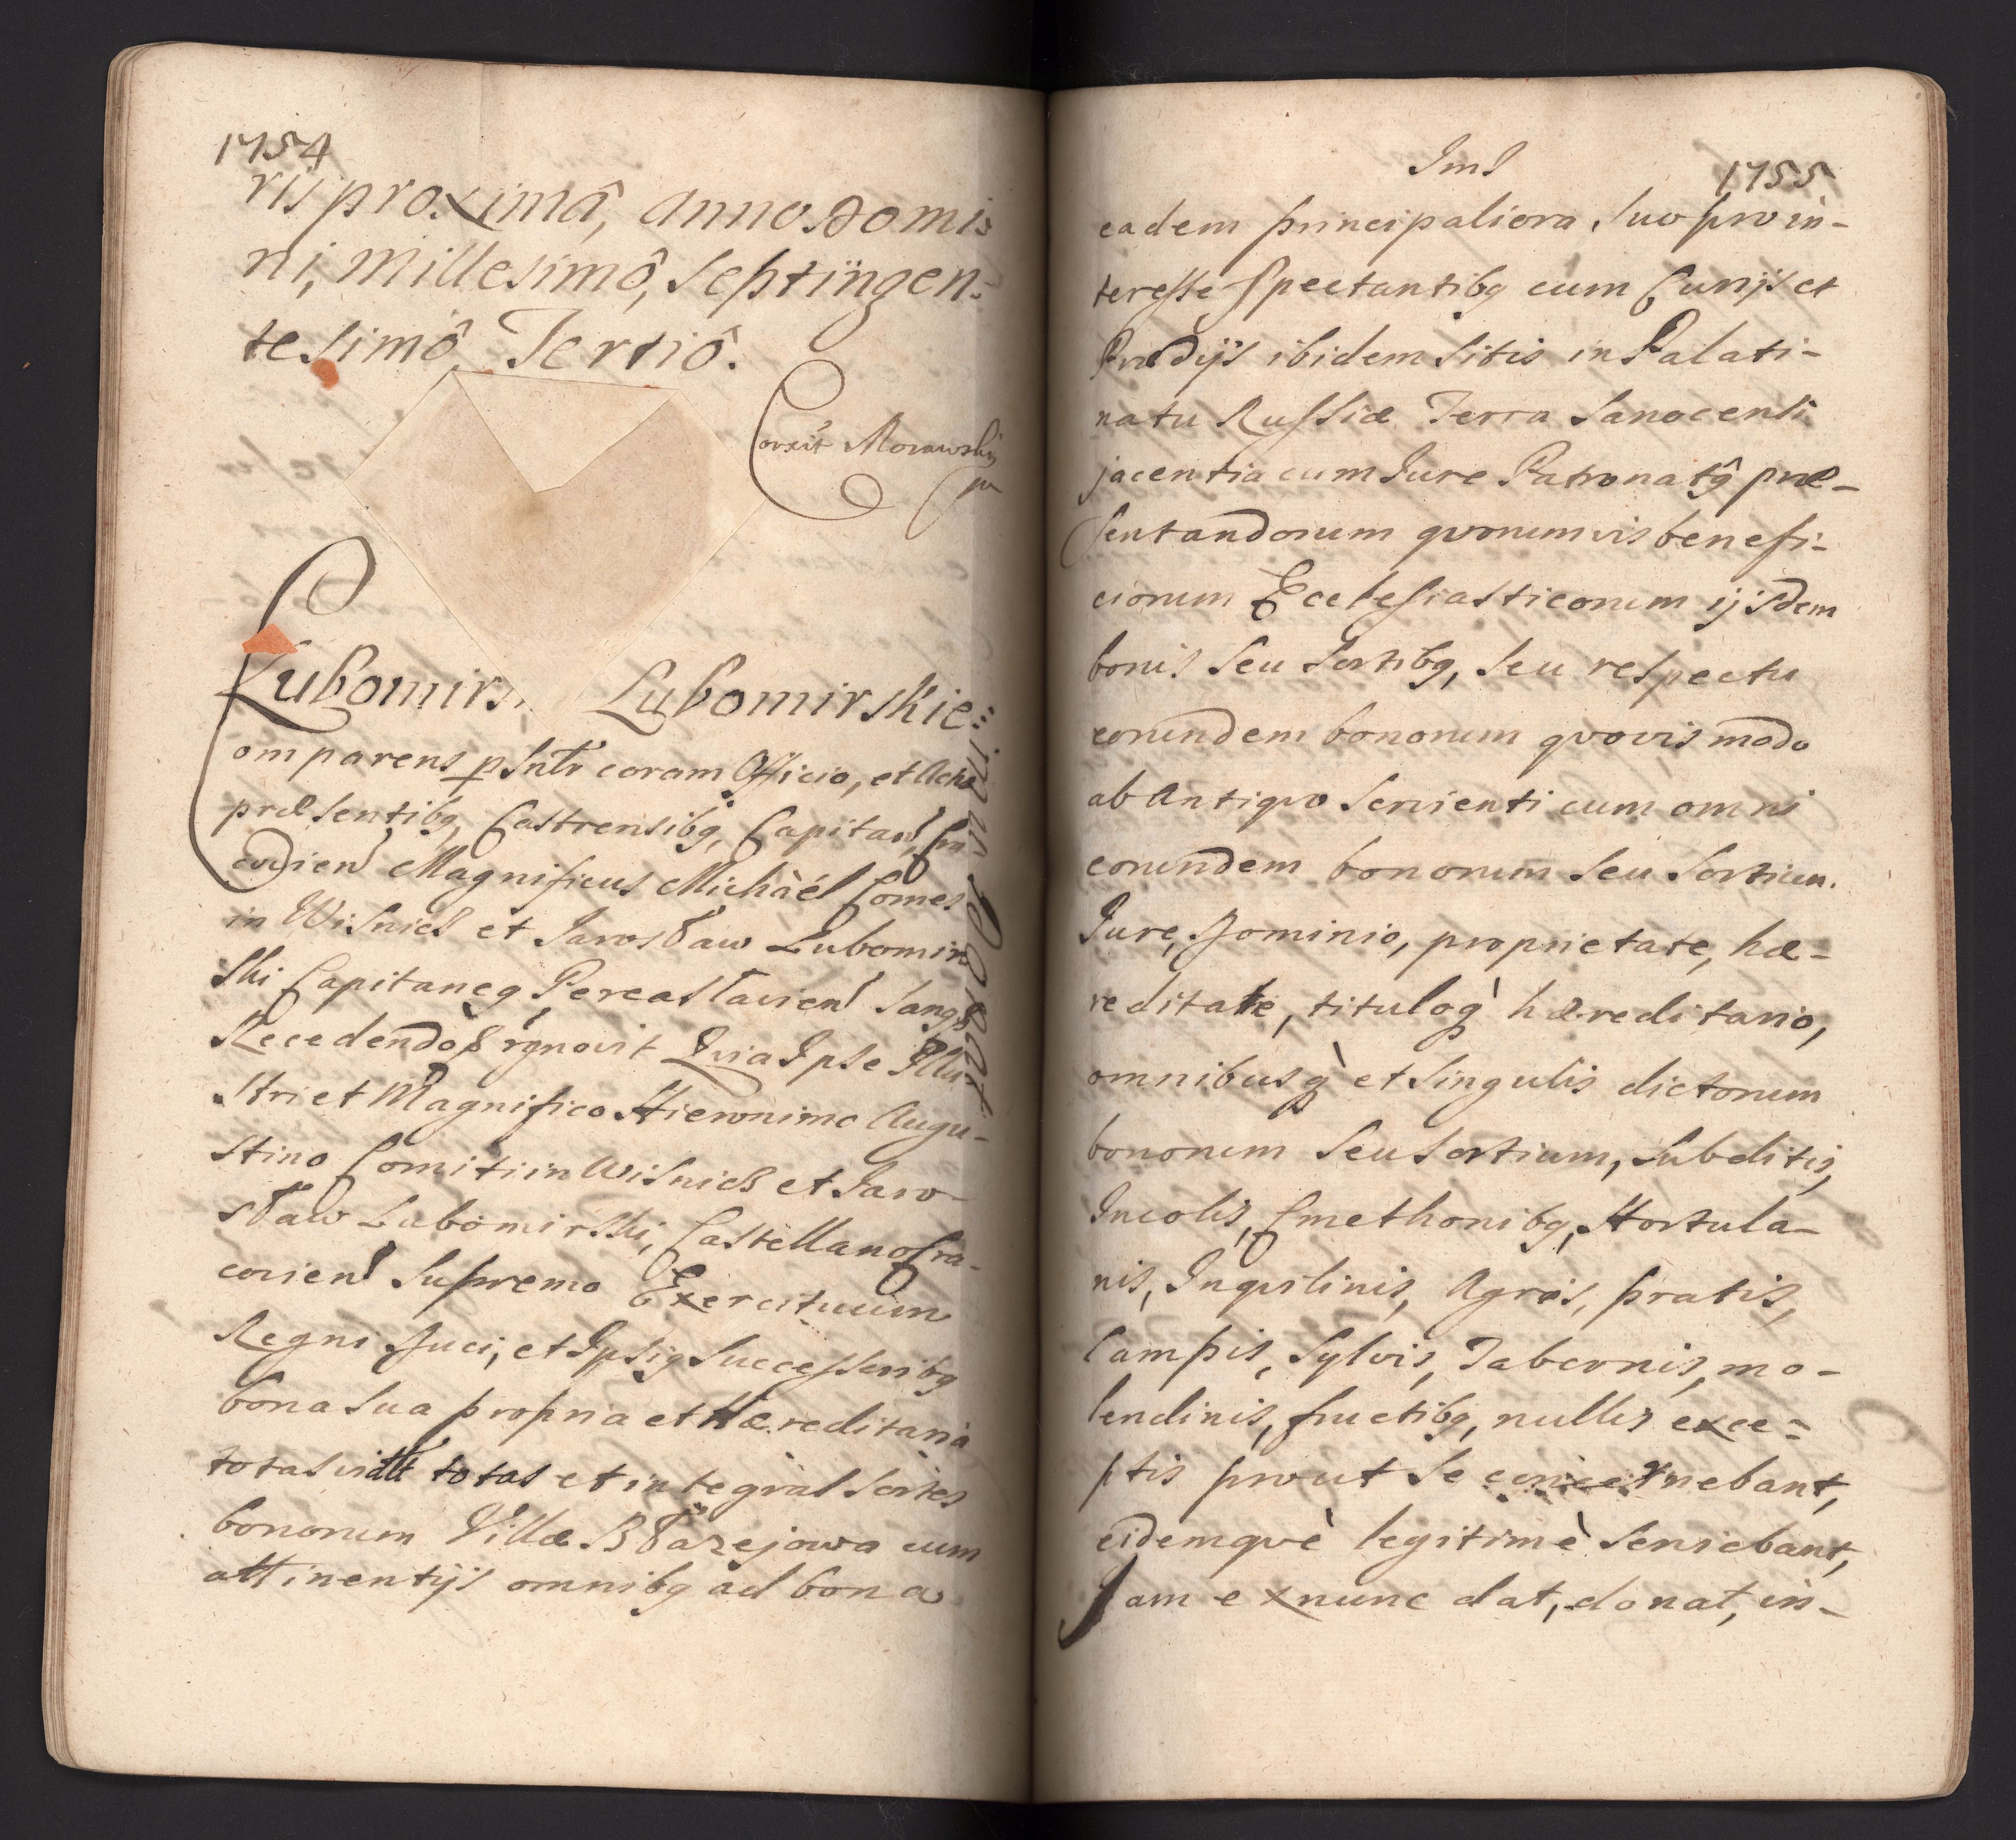 1754
ris proximâ, anno Domi=
ni, Millesimô, Septingen=
tesimô Tertiô.
Corxit Morawski
mp
Lubomirs. Lubomirskie=
Comparens psntr coram Officio, et Actis
præsentibq Castrensibq, Capitanl, Cra
covienl Magnificus Michàél Comes
in Wisnicz et Jarosław Lubomir
ski Capitaneq Pereasławienl Sanq
Recedendo &c rgnovit Quia Ipse Illu
stri et Magnifico Hieronimo Augu-
stino Comiti in Wisnicz et Jaro-
sław Lubomirski, Castellano Cra-
covienl Supremo Exercituum
Regni Duci, et Ipsiq Successoribq
bona sua propria et Hæreditaria
totas et integras Sortes
bonorum Villæ Błażejowa cum
attinentijs omnibq ad bona
Iml
1755
eadem principaliora, suo pro in-
teresse spectantibq cum Curijs et
Prædijs ibidem sitis in Palati-
natu Russiæ Terra Sanocensi
jacentia cum Jure Patronatq præ-
sentandorum qvorumvis benefi-
ciorum Ecclesiasticorum ijsdem
bonis seu Sortibq, seu respectu
eorundem bonorum qvovis modo
ab Antiqvo servienti cum omni
eorundem bonorum seu Sortium.
Jure, Dominio, proprietate, hæ=
reditate, tituloq̀ hæreditario,
omnibusq̀ et singulis dictorum
bonorum seu Sortium, Subditis,
Incolis, Cmethonibq, Hortula-
nis, Inqvilinis, Agris, pratis,
Campis, Sylvis, Tabernis, mo-
lendinis, fructibq, nullis exce=
ptis prout se concernebant,
eidemqvè legitimè serviebant,
Jam exnunc dat, donat, in-